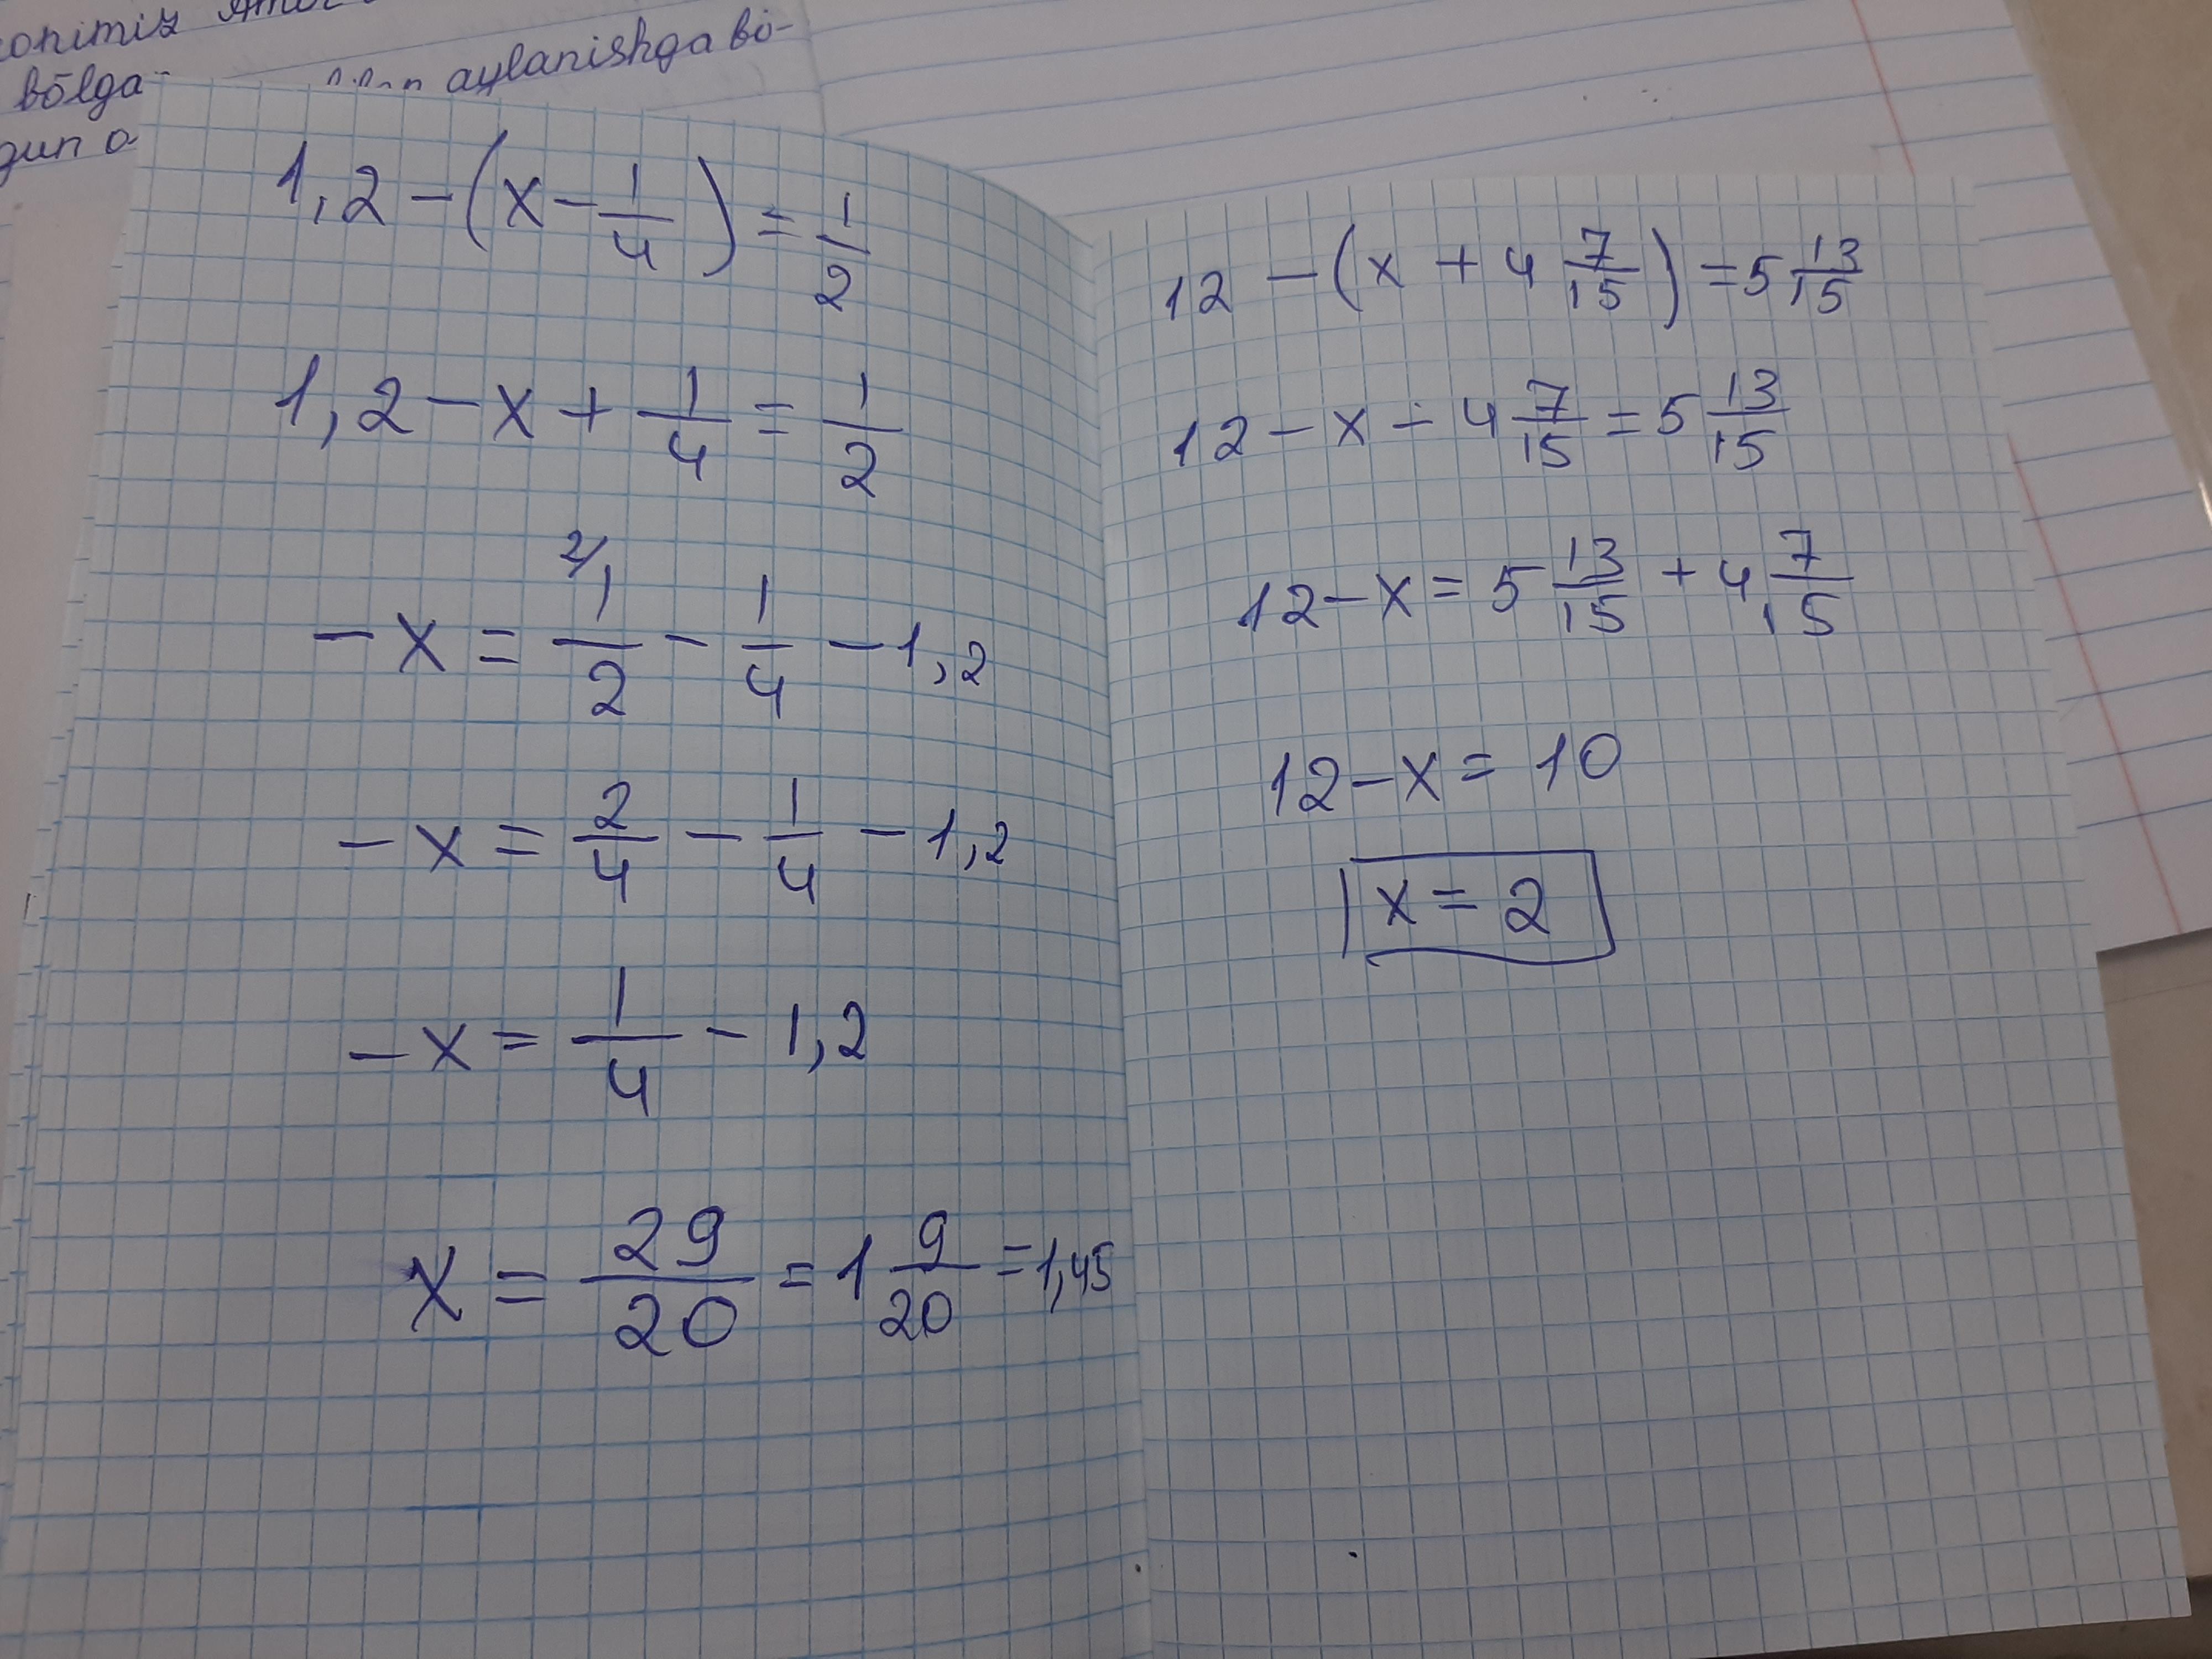 bõlga
aylanishga bõ-
1,2 - (x - 1/4) = 1/2
1,2 - x + 1/4 = 1/2
2/
-x = 1/2 - 1/4 - 1,2
-x = 2/4 - 1/4 - 1,2
-x = 1/4 - 1,2
x = 29/20 = 1 9/20 = 1,45
12 - (x + 4 7/15) = 5 13/15
12 - x - 4 7/15 = 5 13/15
12 - x = 5 13/15 + 4 7/15
12 - x = 10
x = 2